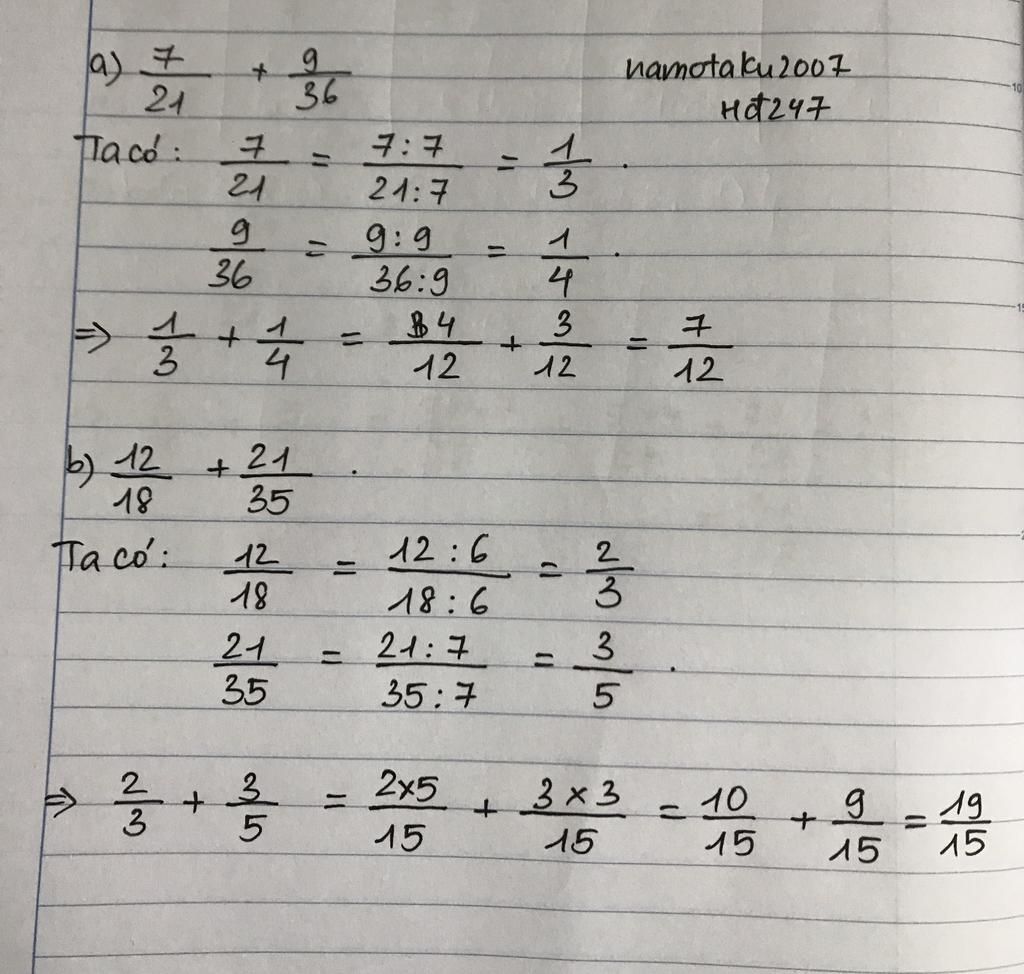 a) 7/21 + 9/36 namotaku2007
Hđ247
Ta có: 7/21 = 7:7/21:7 = 1/3 .
9/36 = 9:9/36:9 = 1/4 .
=> 1/3 + 1/4 = 4/12 + 3/12 = 7/12
b) 12/18 + 21/35 .
Ta có: 12/18 = 12:6/18:6 = 2/3
21/35 = 21:7/35:7 = 3/5 .
=> 2/3 + 3/5 = 2×5/15 + 3×3/15 = 10/15 + 9/15 = 19/15